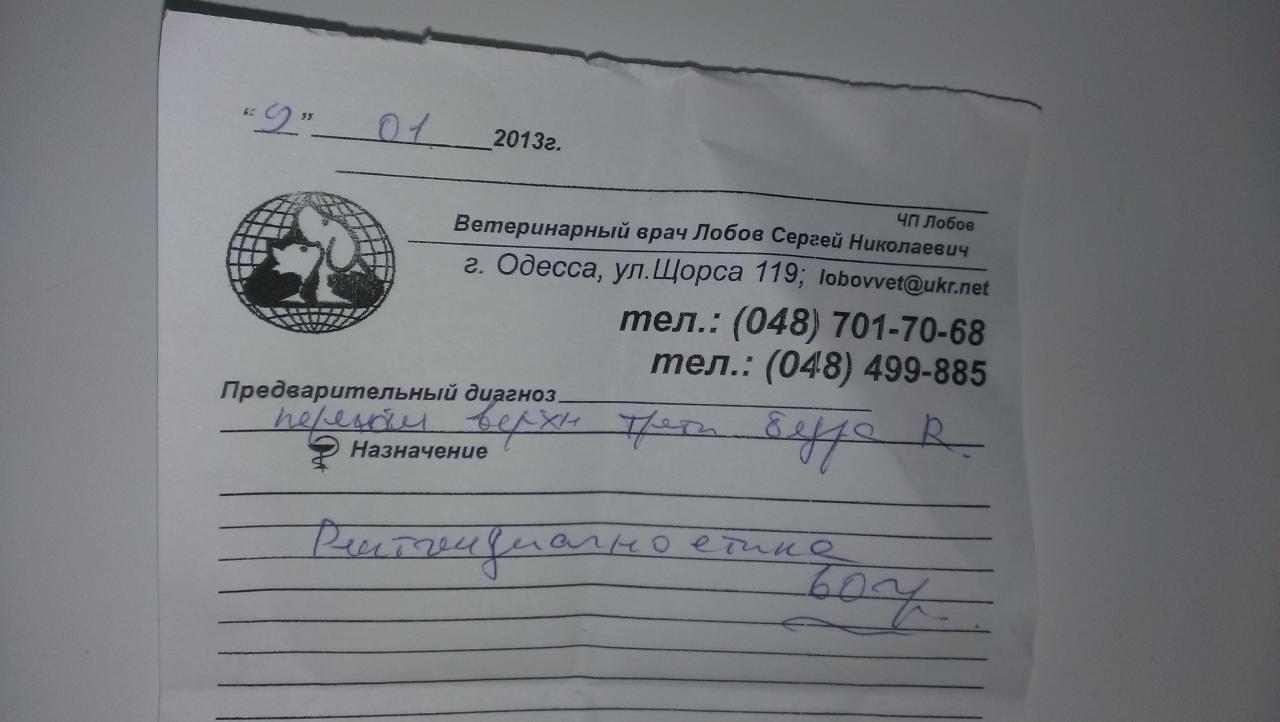 "9" 01 2013г.
ЧП Лобов
Ветеринарный врач Лобов Сергей Николаевич
г. Одесса, ул.Щорса 119; lobovvet@ukr.net
тел.: (048) 701-70-68
тел.: (048) 499-885
Предварительный диагноз
перелом верхн трети бедра R.
Назначение
Рентгендиагностика
60 гр.